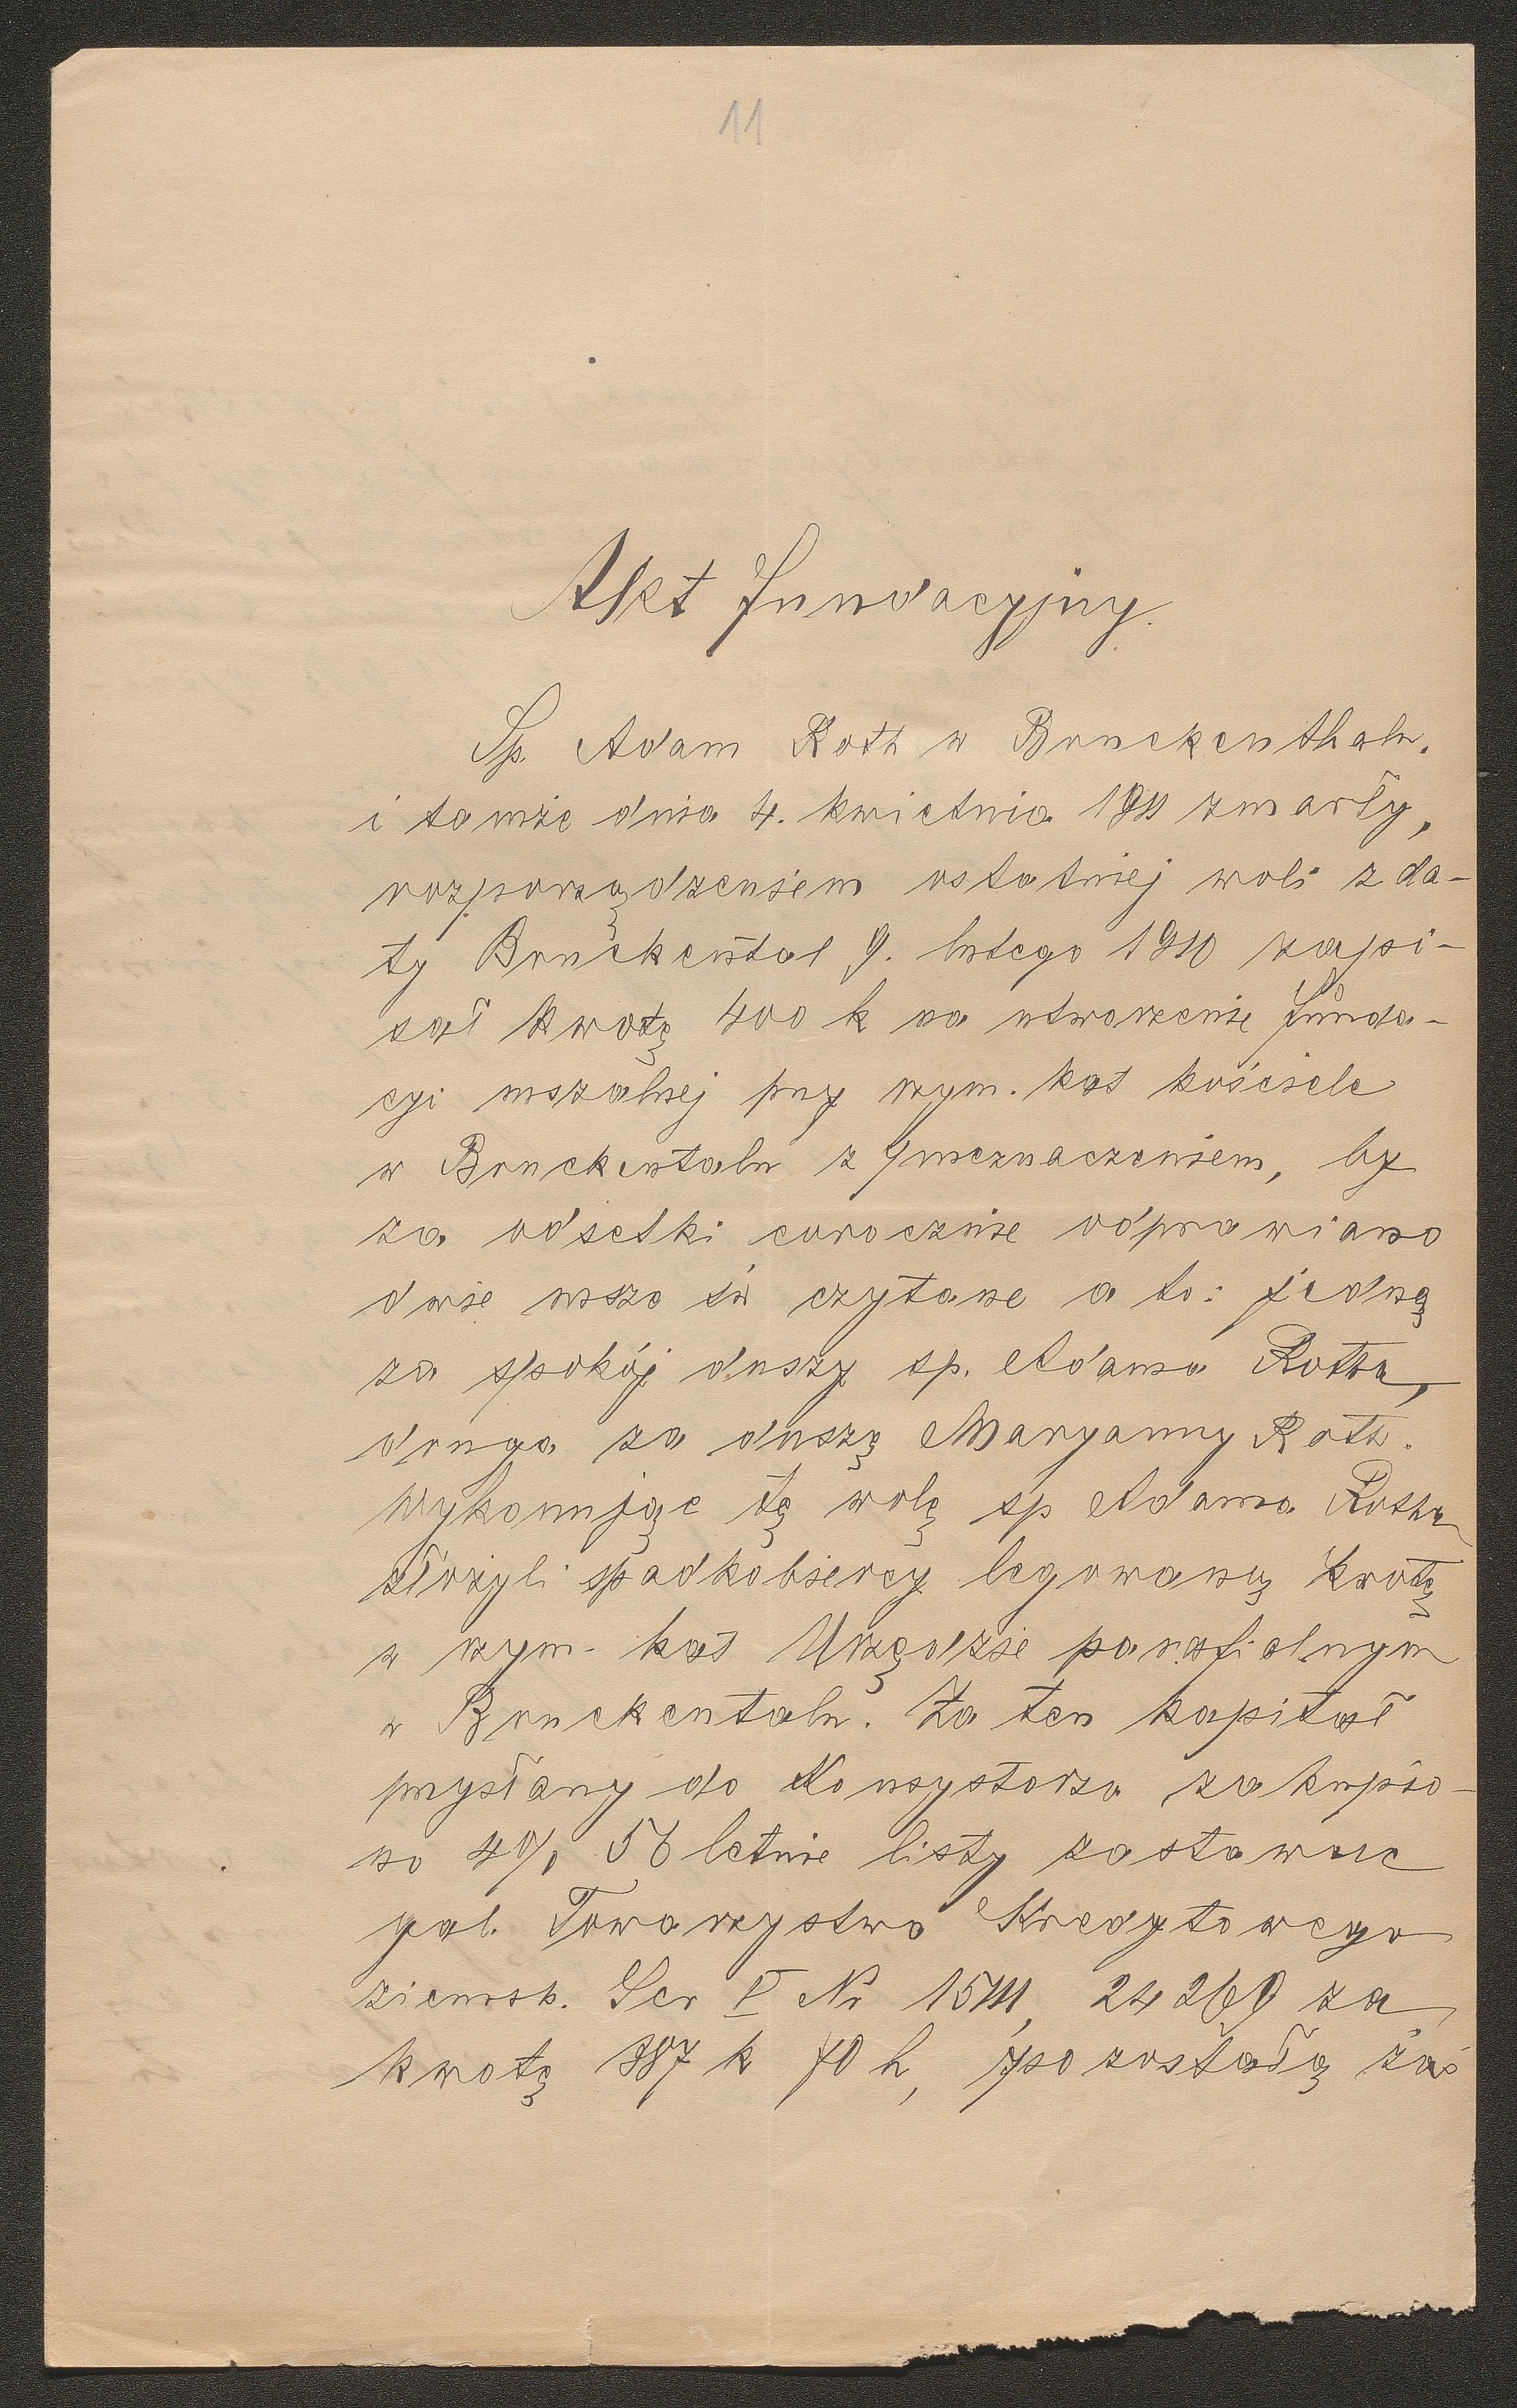 11
Akt fundacyjny.
Śp. Adam Roth w Bruckenthalu.
i tamże dnia 4. kwietnia 1911 zmarły,
rozporządzeniem ostatniej woli z da-
ty Bruckental 9. lutego 1910 zapi-
sał kwotę 400 k na utworzenie funda-
cyi mszalnej przy rzym. kat kościele
w Bruckentalu z przeznaczeniem, by
za odsetki corocznie odprawiano
dwie msze św czytane a to: jedną
za spokój duszy śp. Adama Rotha,
druga za duszę Maryanny Roth.
Wykonując tę wolę śp Adama Rotha
złożyli spadkobiercy legowaną kwotę
w rzym. kat Urzędzie parafialnym
w Bruckentalu. Za ten kapitał
przysłany do Konsystorza zakupio-
no 4% 56 letnie listy zastawne
gal. Towarzystwa Kredytowego
ziemsk. Ser V Nr 24260 za
kwotę 387 k 70 h, pozostałą zaś